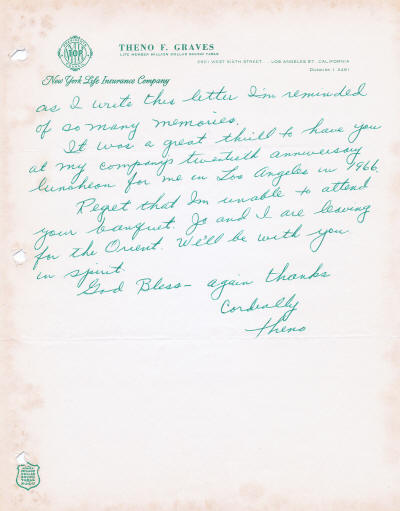 TOP
THENO F. GRAVES
LIFE MEMBER MILLION DOLLAR ROUND TABLE
2601 WEST SIXTH STREET LOS ANGELES 57, CALIFORNIA
New York Life Insurance Company
as I write this letter I'm reminded
of so many memories.
It was a great thrill to have you
at my company's twentieth anniversary
luncheon for me in Los Angeles in 1966.
Regret that I'm unable to attend
your banquet. Jo and I are leaving
for the Orient. We'll be with you
in spirit.
God Bless – again thanks
Cordially
Theno
MILLION
DOLLAR
ROUND
TABLE